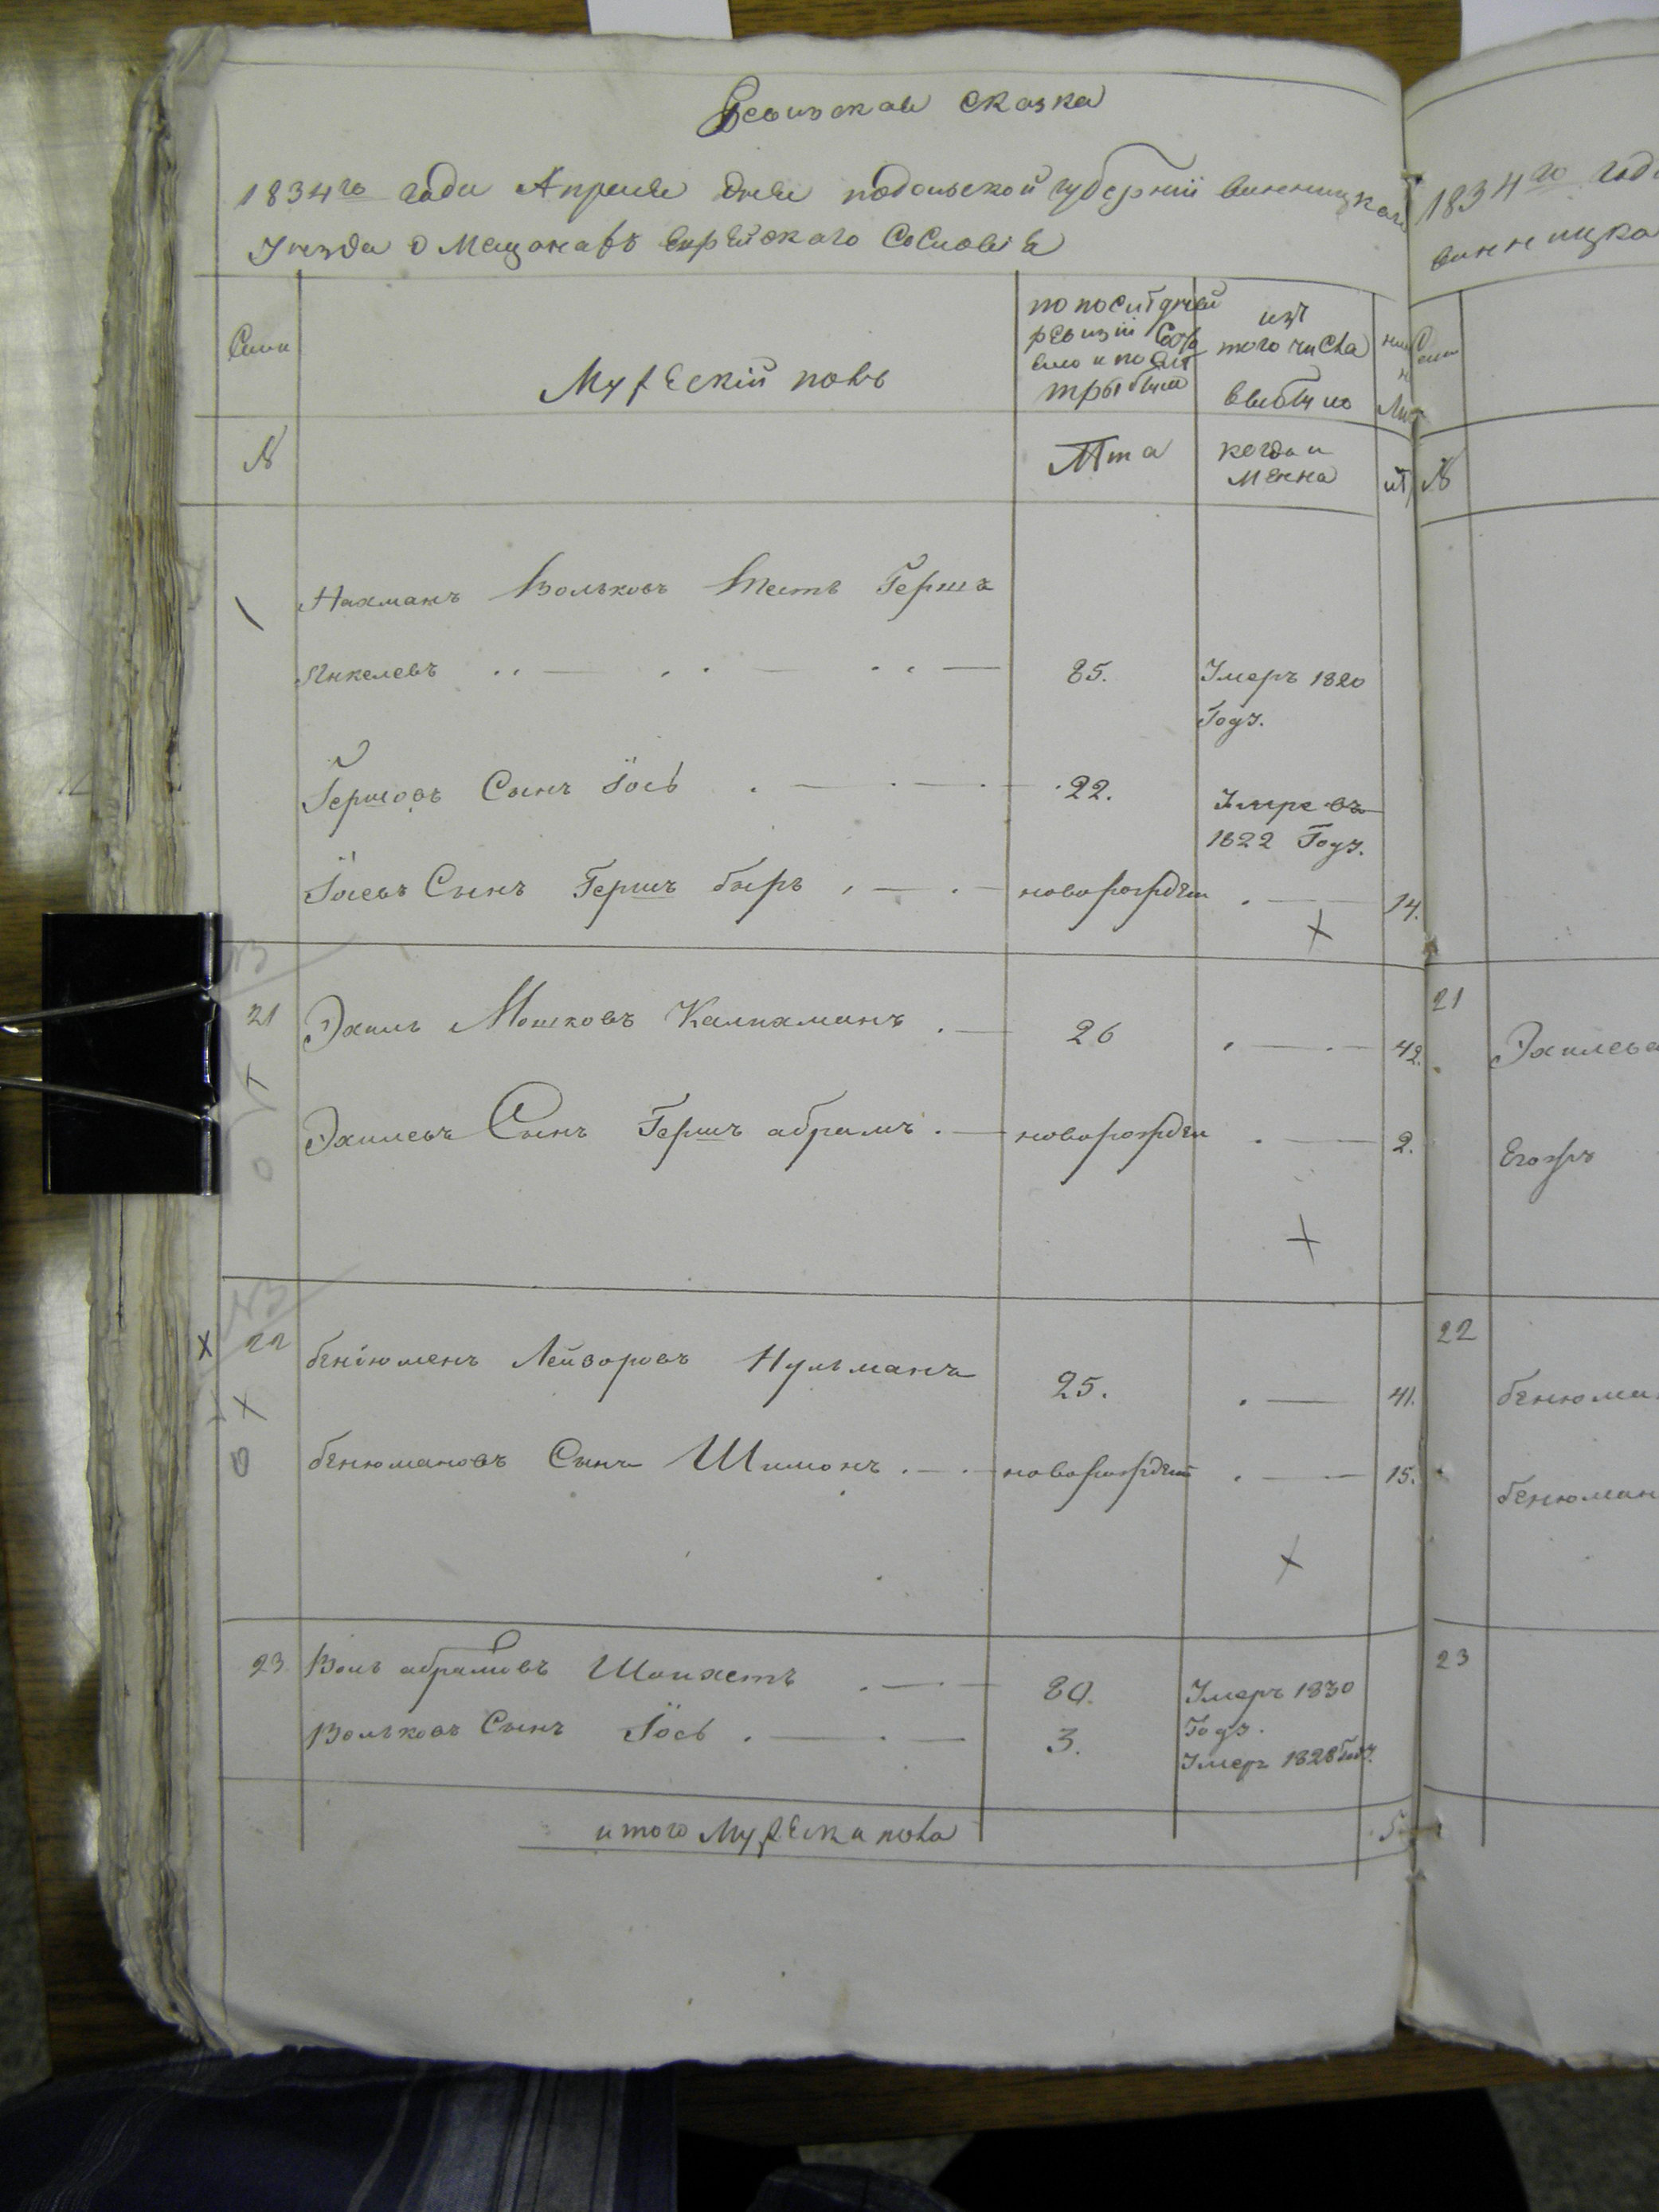 Ревизская сказка
1834го года Апреля дня подольской губернии винницкаго
Уезда о Мещанахъ Еврейскаго Сословия
Семьи
Мужескій полъ
по последней
ревизіи Состо
яло и после
того
числа
выбыло
№
Лта
когда и
менно
№
Нахманъ Вольковъ Тесть Гершъ
Янкелевъ
85.
Умеръ 1820
Году.
Гершовъ Сынъ Іось
22.
Умре въ
1822 Году.
Іосевъ Сынъ Гершъ беръ
новорожден
14.
21
Эхиль Мошковъ Калихманъ
26
42.
Эхилевъ Сынъ Гершъ абрамъ
новорожден
2.
22
беніюменъ Лейзоровъ Нульманъ
25.
41.
бенюмановъ Сынъ Шимонъ
новорожден
15.
23
Воль абрамовъ Шойхетъ
80.
Умеръ 1830
Году.
Вольковъ Сынъ Іось
3.
Умеръ 1828 Году.
итого Мужеска пола
5
1834го года
винницка
№
21
Эхилева
Егожъ
22
бенюма
бенюман
23